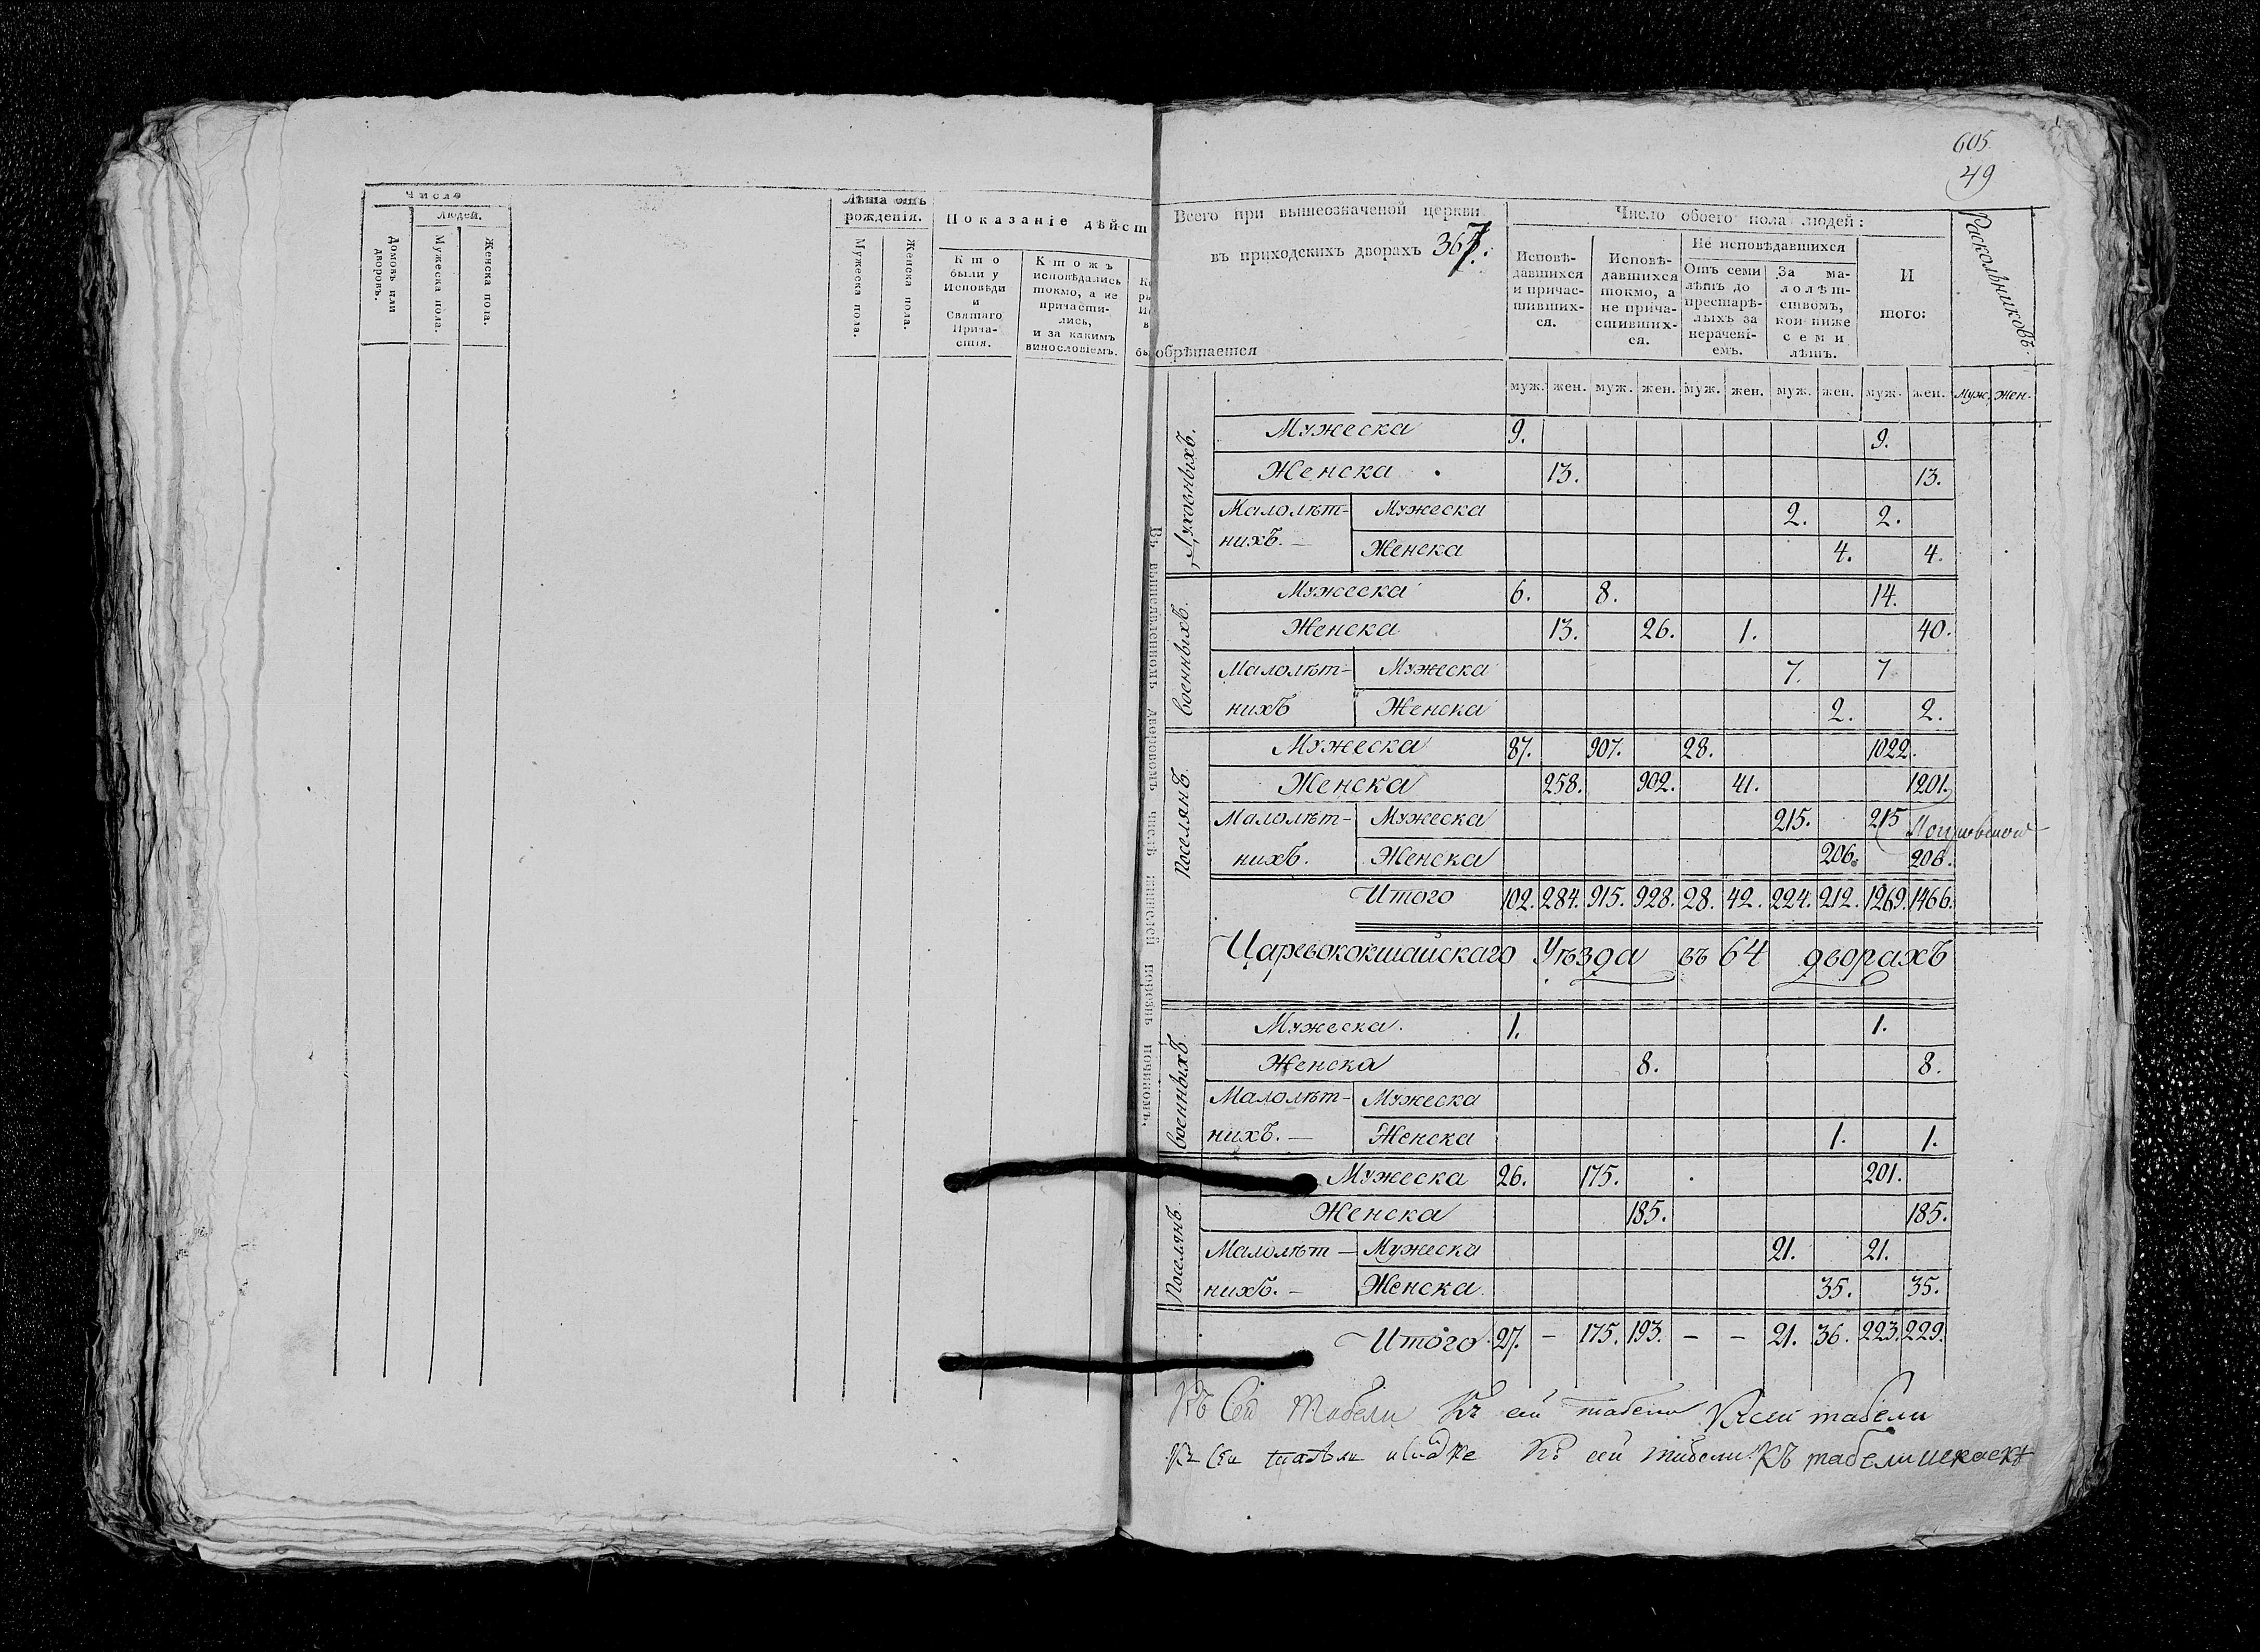 605.
49
Число
людей.
Домовъ или дворовъ.
Мужеска пола.
Женска пола.
Лѣта отъ
рожденія.
Мужеска пола.
Женска пола.
Показаніе дѣйст
Кто
были у
Исповѣди
и
Святаго
Прича-
стія.
Ктожъ
исповѣдались
токмо, а не
причасти-
лись,
и за какимъ
винословіемъ.
Всего при вышеозначеной церкви
въ приходскихъ дворахъ 367.
обрѣтается
Число обоего пола людей:
Исповѣ-
давшихся
и причас-
тивших-
ся.
Исповѣ-
давшихся
токмо, а
не прича-
стивших-
ся.
Не исповѣдавшихся
Отъ семи
лѣтъ до
престарѣ-
лыхъ за
нерачені-
емъ.
За ма-
лолѣт-
ствомъ,
кои ниже
семи
лѣтъ.
И
того:
Раскольниковъ.
муж. жен. муж. жен. муж. жен. муж. жен. муж. жен. Муж. Жен.
Духовныхъ.
Мужеска 9. 9.
Женска 13. 13.
Малолѣт- Мужеска 2. 2.
нихъ. Женска 4. 4.
Военныхъ.
Мужеска 6. 8. 14.
Женска 13. 26. 1. 40.
Малолѣт- Мужеска 7. 7
нихъ Женска 2. 2.
Поселянъ.
Мужеска 87. 907. 28. 1022.
Женска 258. 902. 41. 1201.
Малолѣт- Мужеска 215. 215
нихъ. Женска 206. 206.
Итого 102. 284. 915. 928. 28. 42. 224. 212. 1269. 1466.
Царевококшайскаго Уѣзда въ 64 дворахъ
Военныхъ.
Мужеска. 1. 1.
Женска 8. 8.
Малолѣт- Мужеска
нихъ. Женска 1. 1.
Поселянъ.
Мужеска 26. 175. 201.
Женска 185. 185.
Малолѣт- Мужеска 21. 21.
нихъ. Женска. 35. 35.
Итого 27. – 175. 193. – – 21. 36. 223. 229.
Въ вышеявленномъ дворовомъ числѣ
Къ Сей Табели Къ сей табели Ксей табели
Къ сей табели Къ табели